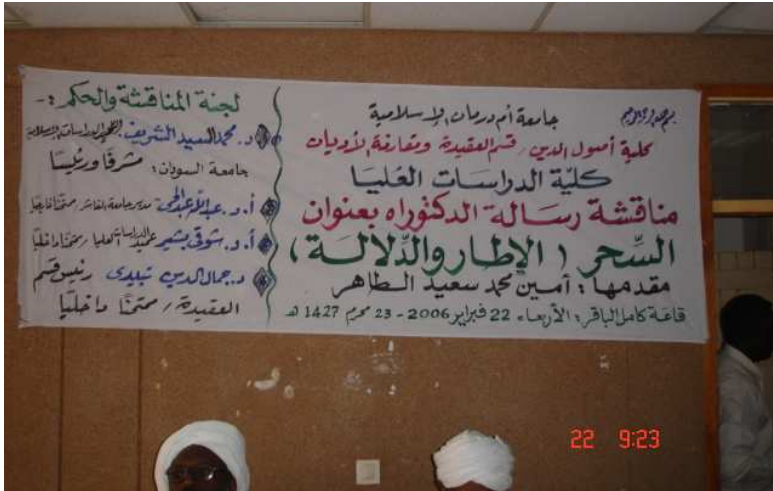 بسم الله الرحمن الرحيم
جامعة أم درمان الإسلامية
كلية أصول الدين / قسم العقيدة ومقارنة الأديان
كليّة الدراسات العُليا
مناقشة رسالة الدكتوراه بعنوان
السِّحر ( الإطار والدِّلالة )
مقدمها : أمين محمد سعيد الطاهر
قاعة كامل الباقر : الأربعاء 22 فبراير 2006 - 23 محرم 1427 هـ
لجنة المناقشة والحكم :-
د. محمد السعيد الشريف
جامعة السودان : مشرفًا ورئيسًا
أ.د. عبدالله عبدالحي مدير جامعة الفاشر / ممتحنًا خارجيًا
أ.د. شوقي بشير عميد الدراسات العليا / ممتحنًا داخليًا
د. جمال الدين تبيدي رئيس قسم
العقيدة / ممتحنًا داخليًا
22 9:23